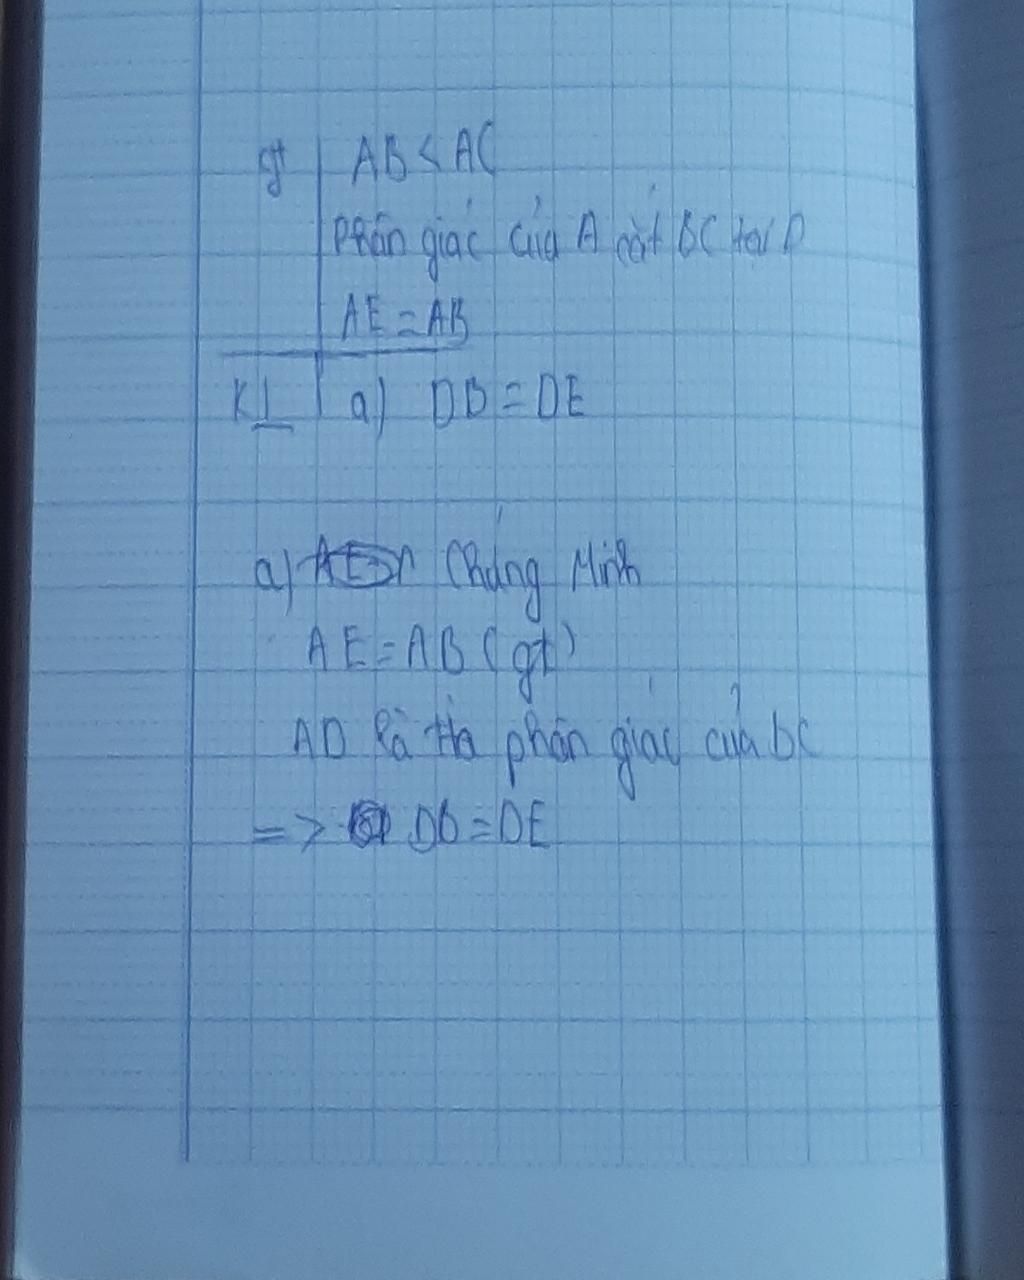 gt AB < AC
phân giác của A cắt BC tại D
AE = AB
KL a) DB = DE
a) Chứng Minh
AE = AB (gt)
AD là tia phân giác của BC
=> DB = DE